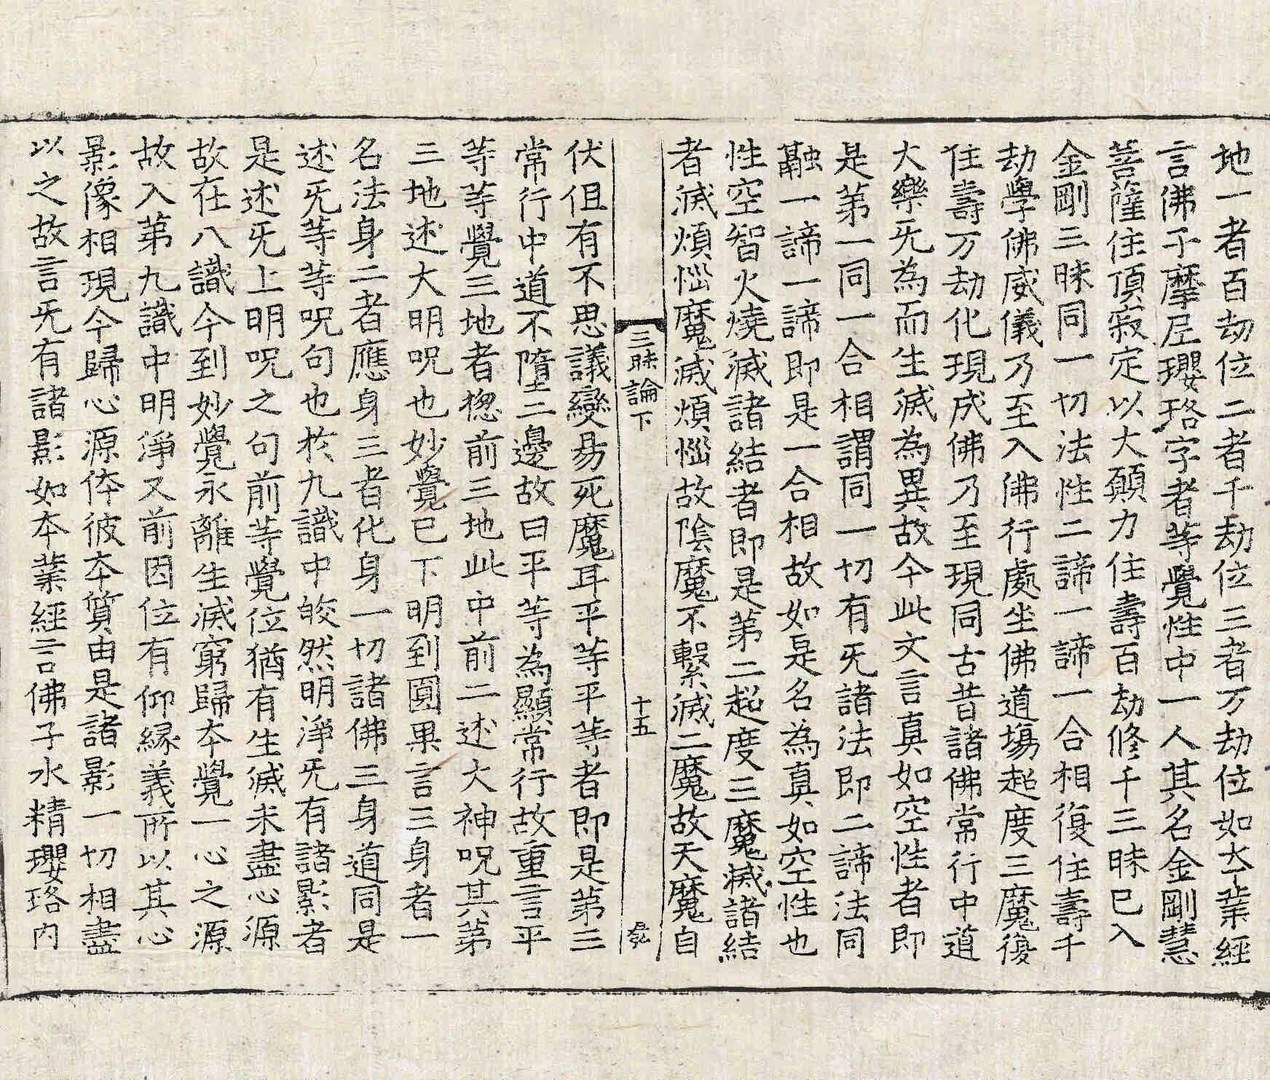 地一者百劫位二者千劫位三者万劫位如夲業經
言佛子摩尼瓔珞字者等覺性中一人其名金剛慧
菩薩住頂寂定以大願力住壽百劫修千三昧已入
金剛三昧同一切法性二諦一諦一合相復住壽千
劫學佛威儀乃至入佛行處坐佛道場超度三魔復
住壽万劫化現成佛乃至現同古昔諸佛常行中道
大樂旡為而生滅為異故今此文言真如空性者即
是第一同一合相謂同一切有旡諸法即二諦法同
融一諦一諦即是一合相故如是名為真如空性也
性空智火燒滅諸結者即是第二超度三魔滅諸結
者滅煩惱魔滅煩惱故陰魔不繫滅二魔故天魔自
三昧論下 十五
伏但有不思議變易死魔耳平等平等者即是第三
常行中道不墮二邊故曰平等為顯常行故重言平
等等覺三地者揔前三地此中前二述大神呪其第
三地述大明呪也妙覺已下明到圓果言三身者一
名法身二者應身三者化身一切諸佛三身道同是
述旡等等呪句也於九識中皎然明淨旡有諸影者
是述旡上明呪之句前等覺位猶有生滅未盡心源
故在八識今到妙覺永離生滅窮歸夲覺一心之源
故入第九識中明淨又前因位有仰緣義所以其心
影像相現今歸心源体彼夲質由是諸影一切相盡
以之故言旡有諸影如夲業經言佛子水精瓔珞內